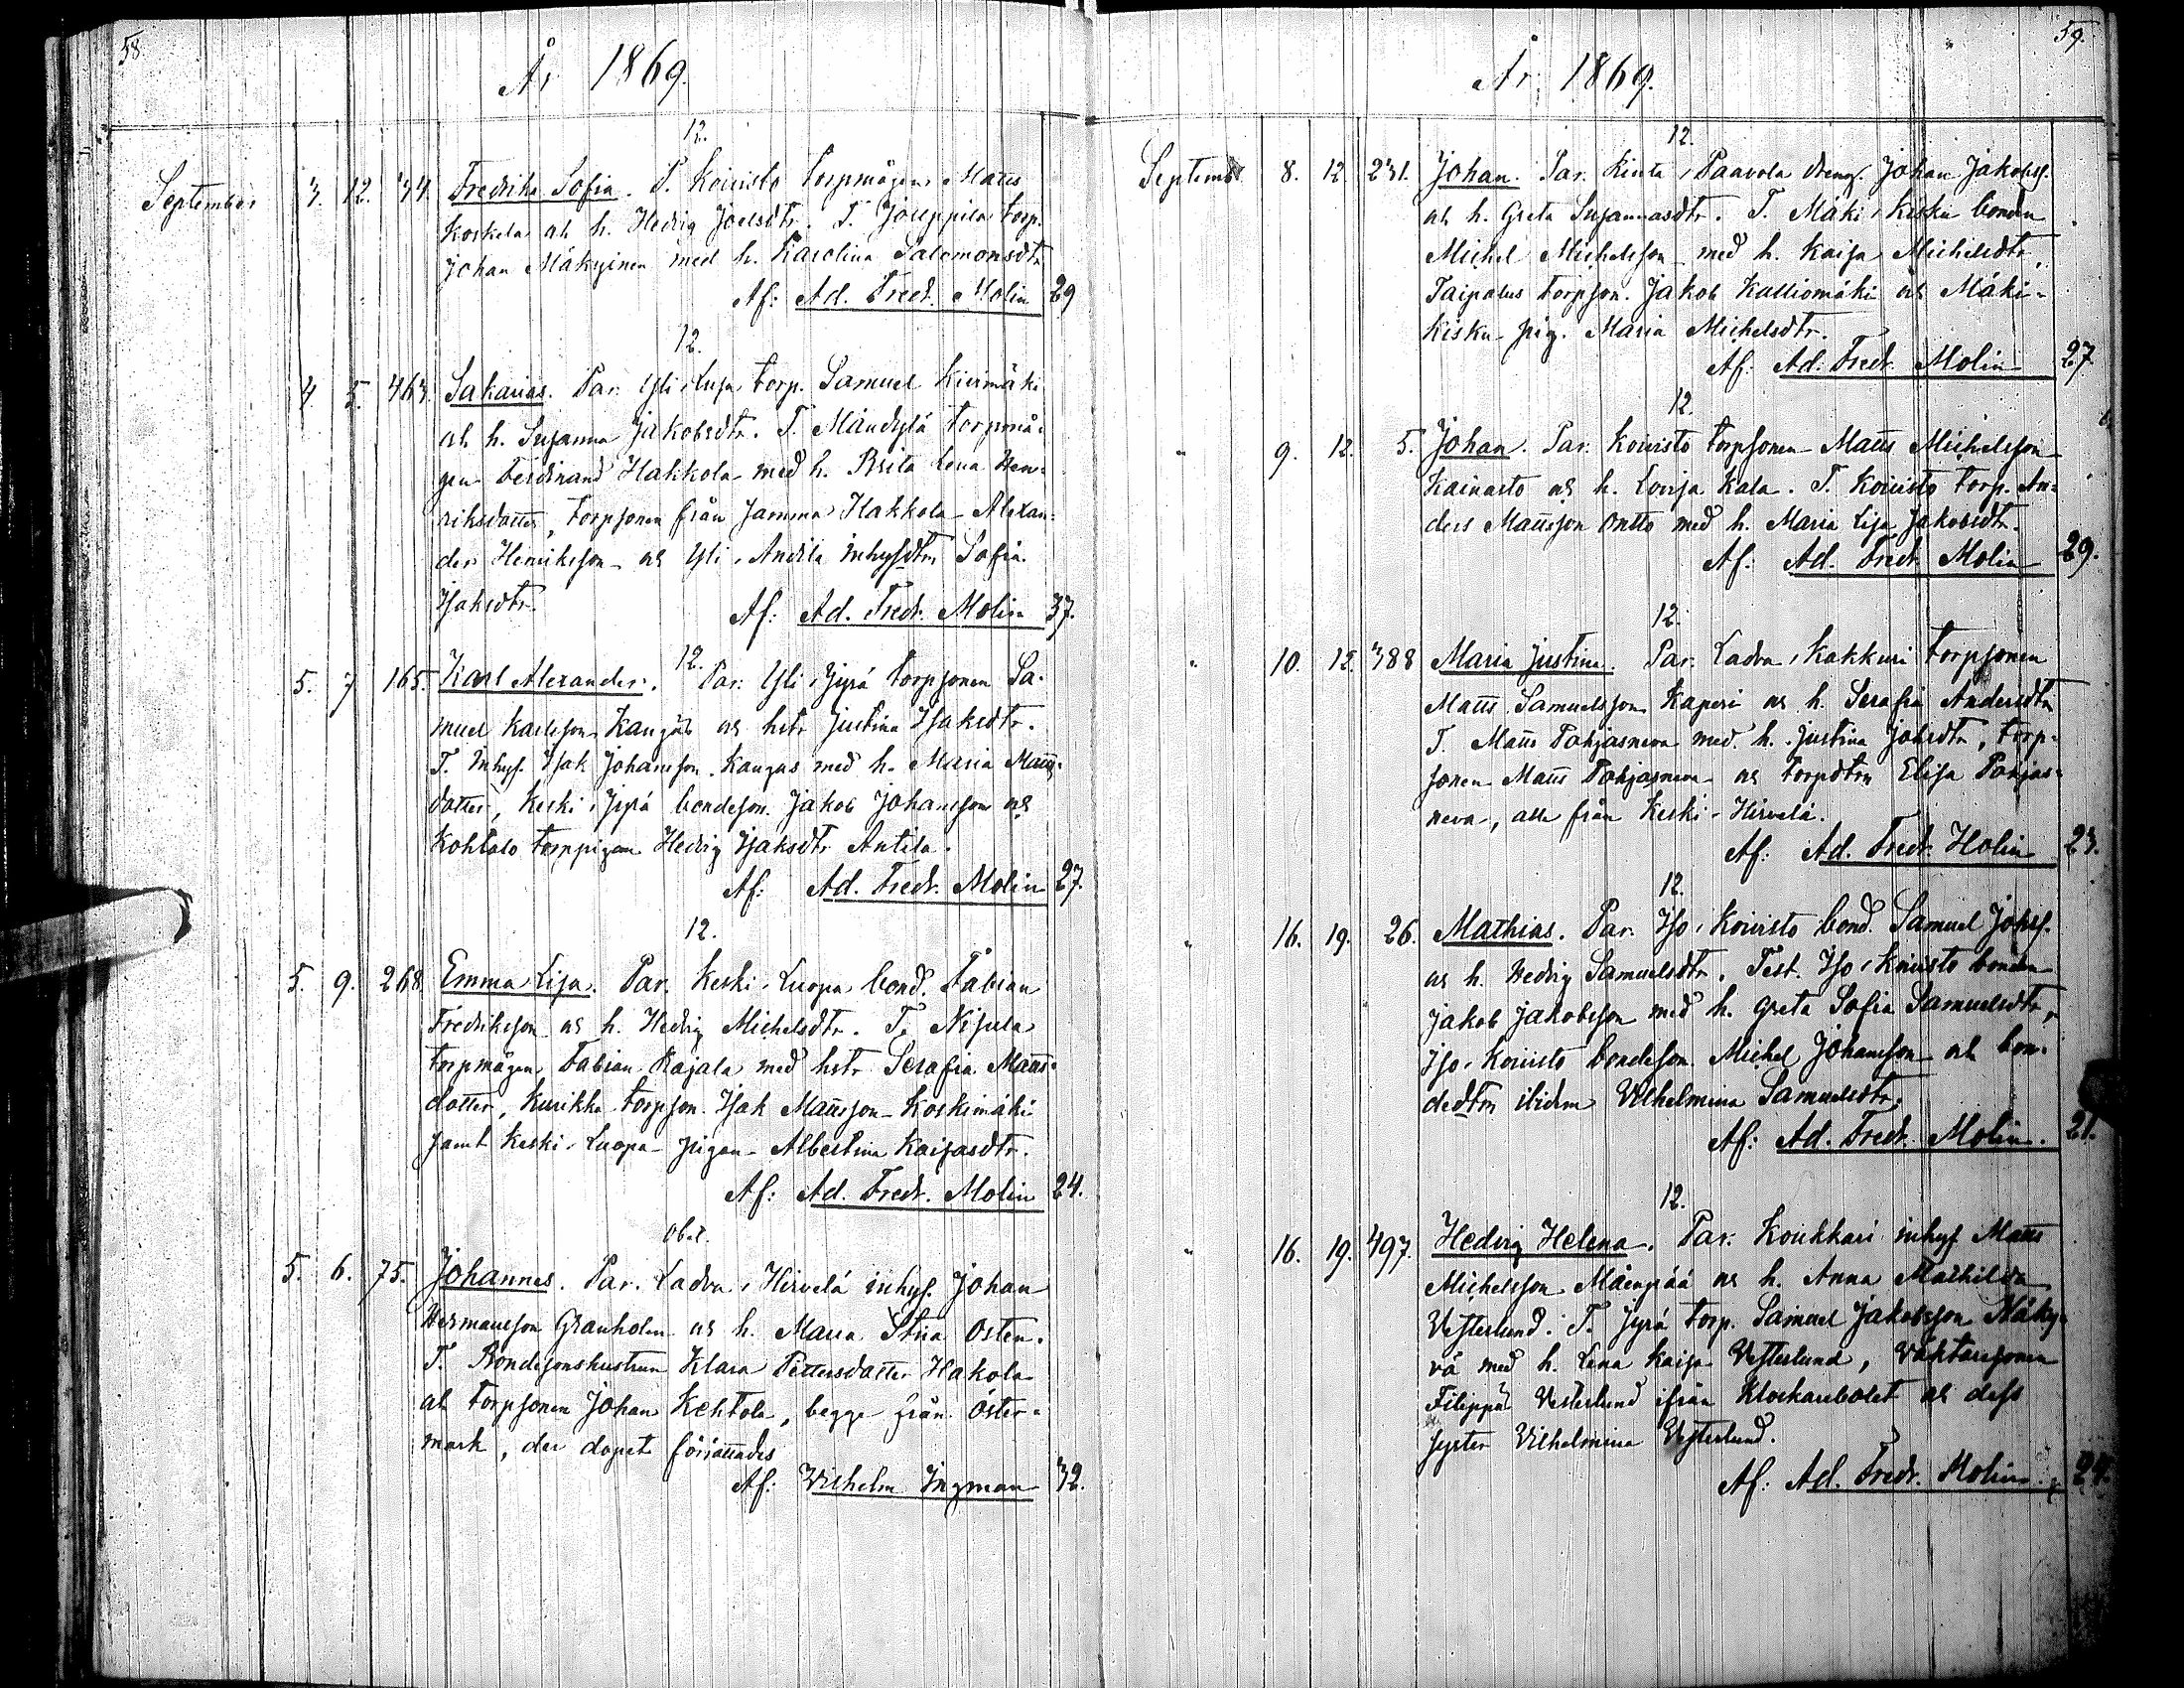 58
År 1869.
12.
September 3. 12. 34. Fredrika Sofia. P. Koivisto Torpmågen Matts
Koskela och h. Hedvig Joelsdtr. T. Joupila torp.
Johan Mäkynen med h. Karolina Salomonsdtr
Af: Ad. Fredr. Molin 29
12.
4. 5. 463. Sakarias. Par. Yli Luopa torp. Samuel Kivimäki
och h. Susanna Jakobsdtr. T. Mäntylä torpmå-
gen Ferdinand Hakkola med h. Brita Lena Hen-
riksdotter, torpsonen från Hakkola Alexan-
der Henriksson och Yli Anttila inhysdtrn Sofia
Isaksdtr. Af: Ad. Fredr. Molin 37.
12.
5. 7. 165. Karl Alexander. Par. Yli Jyrä torpsonen Sa-
muel Karlsson Kangas och hstr Justina Isaksdtr.
T. inhys. Isak Johansson Kangas med h. Maria Matts-
dotter, Keski Jyrä bondeson. Jakob Johansson och
Kohtalo torppigan Hedvig Isaksdtr Antila.
Af: Ad. Fredr. Molin 27.
12.
5. 9. 268. Emma Lisa. Par. Keski Luopa bond. Fabian
Fredriksson och h. Hedvig Michelsdtr. T. Nisula
torpmågen Fabian Rajala med hstr Serafia Matts-
dotter, Kurikka torpson. Isak Mattsson Koskimäki
samt Keski Luopa pigan Albertina Kaisasdtr.
Af: Ad. Fredr. Molin 24.
5. 6. 75. Johannes. Par. Ladva Hirvelä inhys. Johan
Hermansson Granholm och h. Maria Stina Östen.
T. Bondesonshustrun Klara Pettersdotter Hakola
och torpsonen Johan Kehtola, begge från Öster-
mark, der dopet förrättades
Af: Wilhelm Ingman 32.
59.
År 1869.
12.
September 8. 12. 231. Johan. Par. Rinta Paavola dreng. Johan Jakobss.
och h. Greta Susannasdtr. T. Mäki Kisku bonden
Michel Michelsson med h. Kaisa Michelsdtr,
Taipalus torpson. Jakob Kalliomäki och Mäki-
Kisku pig. Maria Michelsdtr.
Af: Ad. Fredr. Molin 27
12.
" 9. 12. 5. Johan. Par. Koivisto torpsonen Matts Michelsson
Kainasto och h. Lovisa Kala. T. Koivisto torp. An-
ders Mattsson Ontto med h. Maria Lisa Jakobsdtr.
Af: Ad. Fredr. Molin 29.
12.
" 10. 12. 388 Maria Justina. Par. Ladva Kakkuri torpsonen
Matts Samuelsson Kaperi och h. Serafia Andersdtr
T. Matts Pohjasneva med h. Justina Johsdtr, torp-
sonen Matts Pohjasneva och torpdtrn Elisa Pohjas-
neva, alla från Keski-Hirvelä.
Af: Ad. Fredr. Molin 23.
12.
" 16. 19. 26. Mathias. Par. Iso Koivisto bond. Samuel Johss.
och h. Hedvig Samuelsdtr. Test. Iso Koivisto bonden
Jakob Jakobsson med h. Greta Sofia Samuelsdtr,
Iso Koivisto bondeson. Michel Johansson och bon-
dedtrn ibidem Vilhelmina Samuelsdtr.
Af: Ad. Fredr. Molin. 21.
12.
" 16. 19. 497. Hedvig Helena. Par. Koukkari inhys Matts
Michelsson Mäenpää och h. Anna Mathilda
Vesterlund. T. Jyrä torp. Samuel Jakobsson Näky-
vä med h. Lena Kaisa Vesterlund, Vaktaresonen
Filippus Vesterlund ifrån Klockarebolet och dess
syster Vilhelmina Vesterlund.
Af: Ad. Fredr. Molin 24.